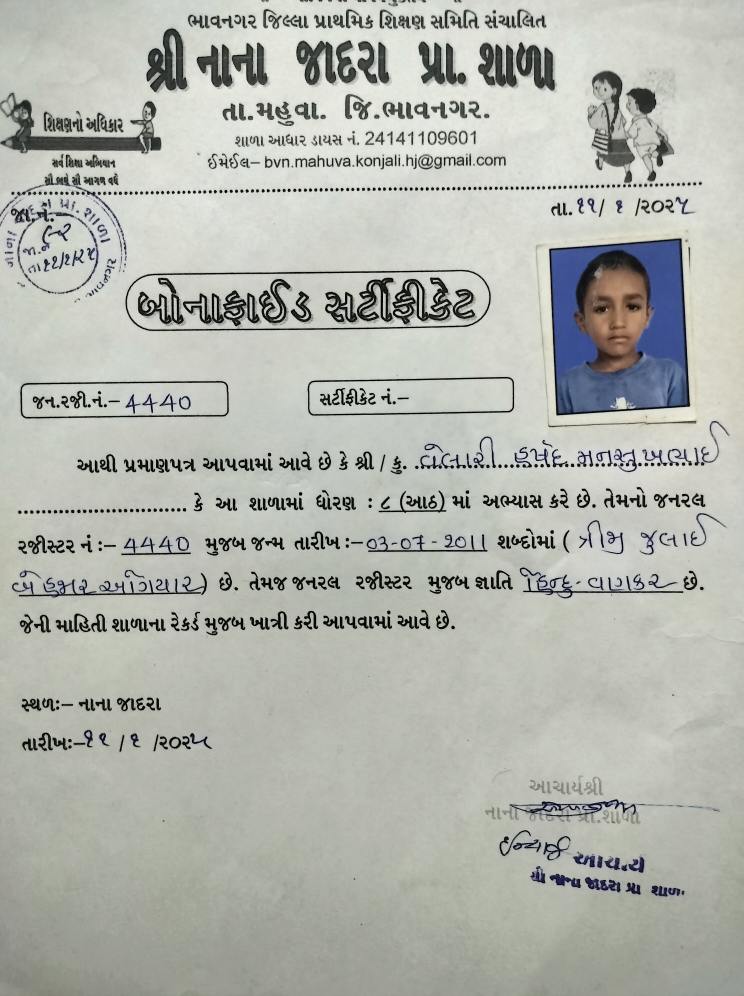 ભાવનગર જિલ્લા પ્રાથમિક શિક્ષણ સમિતિ સંચાલિત
શ્રી નાના જાદરા પ્રા. શાળા
તા.મહુવા. જિ.ભાવનગર.
શિક્ષણનો અધિકાર
સર્વ શિક્ષા અભિયાન
સૌ ભણે સૌ આગળ વધે
શાળા આધાર ડાયસ નં. 24141109601
ઈમેઈલ– bvn.mahuva.konjali.hj@gmail.com
જા.નં.
તા ૧૧/૧/૨૫
તા.૧૧/ ૧ /૨૦૨૫
બોનાફાઈડ સર્ટીફીકેટ
જન.રજી.નં.– 4440
સર્ટીફીકેટ નં.–
આથી પ્રમાણપત્ર આપવામાં આવે છે કે શ્રી / કુ. મનસુખભાઈ
કે આ શાળામાં ધોરણ : ૮ (આઠ) માં અભ્યાસ કરે છે. તેમનો જનરલ
રજીસ્ટર નં :– 4440 મુજબ જન્મ તારીખ :–03-07-2011 શબ્દોમાં ( ત્રીજી જુલાઈ
બે હજાર અગિયાર) છે. તેમજ જનરલ રજીસ્ટર મુજબ જ્ઞાતિ હિન્દુ-વણકર છે.
જેની માહિતી શાળાના રેકર્ડ મુજબ ખાત્રી કરી આપવામાં આવે છે.
સ્થળઃ– નાના જાદરા
તારીખઃ–૧૧ / ૧ /૨૦૨૫
આચાર્યશ્રી
નાના જાદરા પ્રા.શાળા
ઈન્ચાર્જ આચાર્ય
શ્રી નાના જાદરા પ્રા શાળા